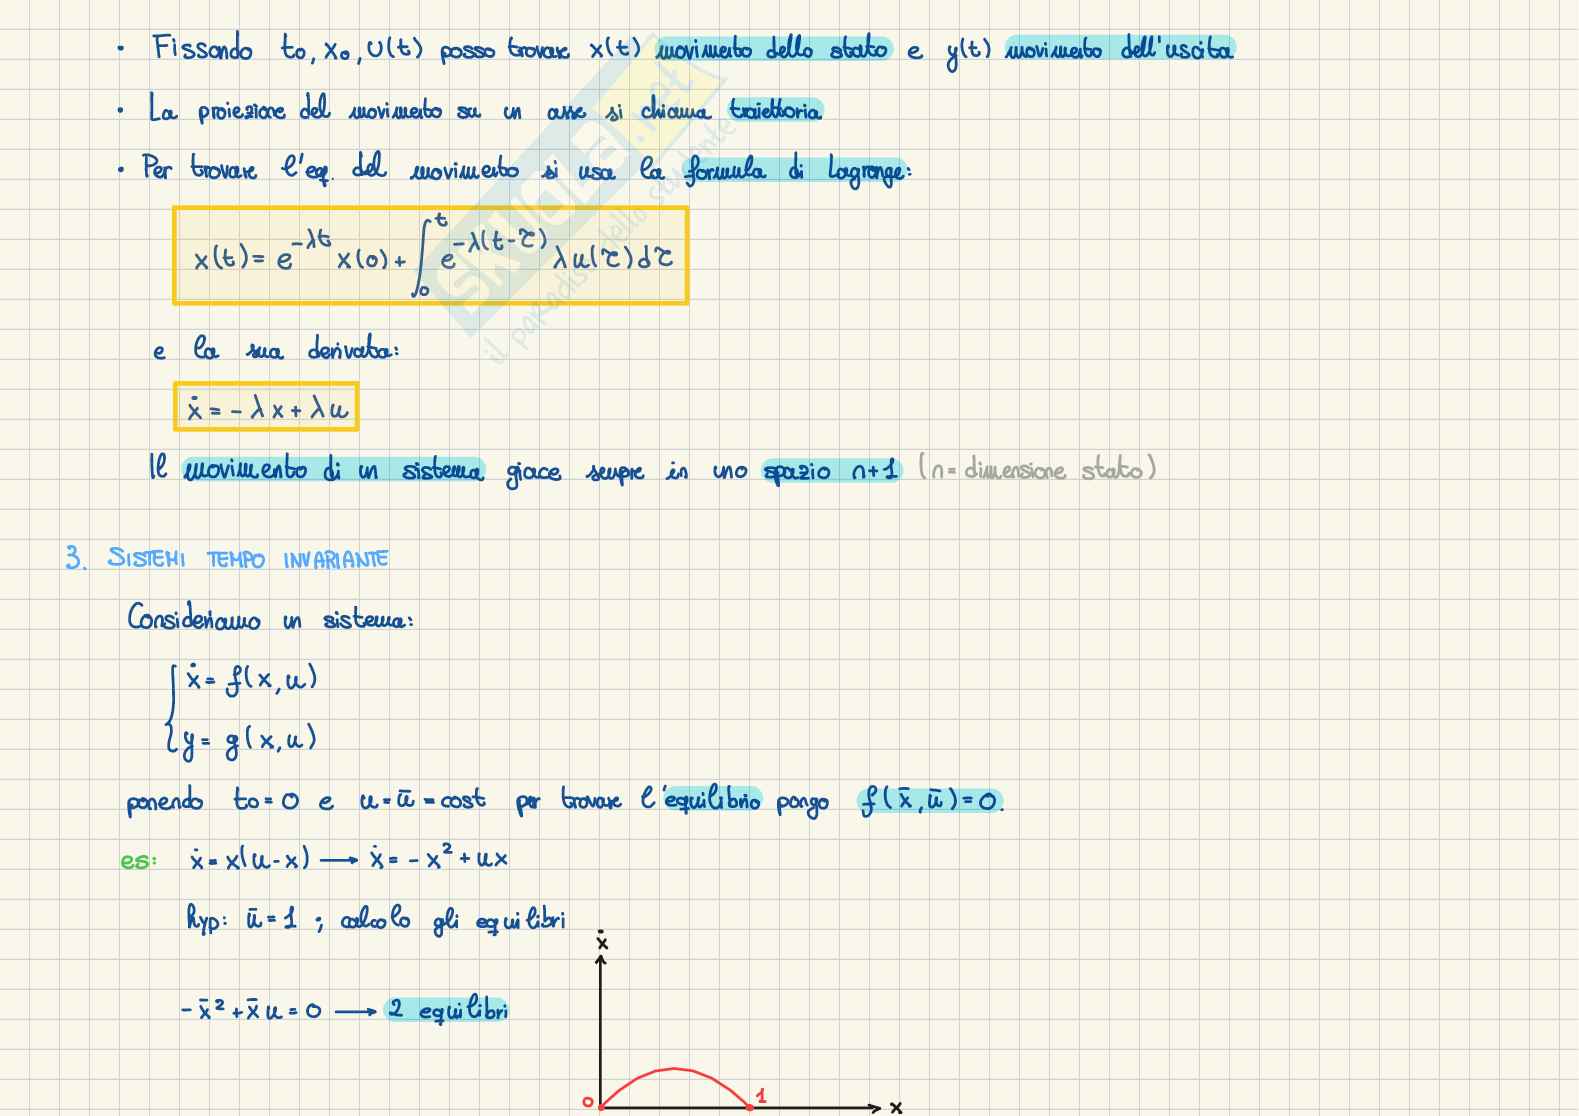 • Fissando to, xo, U(t) posso trovare x(t) movimento dello stato e y(t) movimento dell'uscita
• La proiezione del movimento su un asse si chiama traiettoria
• Per trovare l'eq. del movimento si usa la formula di Lagrange:
x(t) = e^{-λt} x(0) + ∫_0^t e^{-λ(t-τ)} λ u(τ) dτ
e la sua derivata:
ẋ = - λ x + λ u
Il movimento di un sistema giace sempre in uno spazio n+1 (n = dimensione stato)
3. SISTEMI TEMPO INVARIANTE
Consideriamo un sistema:
ẋ = f(x, u)
y = g(x, u)
ponendo to = 0 e u = ū = cost per trovare l'equilibrio pongo f(x̄, ū) = 0.
es: ẋ = x(u - x) → ẋ = - x² + ux
hyp: ū = 1 ; calcolo gli equilibri
ẋ
- x̄² + x̄ u = 0 → 2 equilibri
0 1
x
SKUOLA.net
il paradiso dello studente